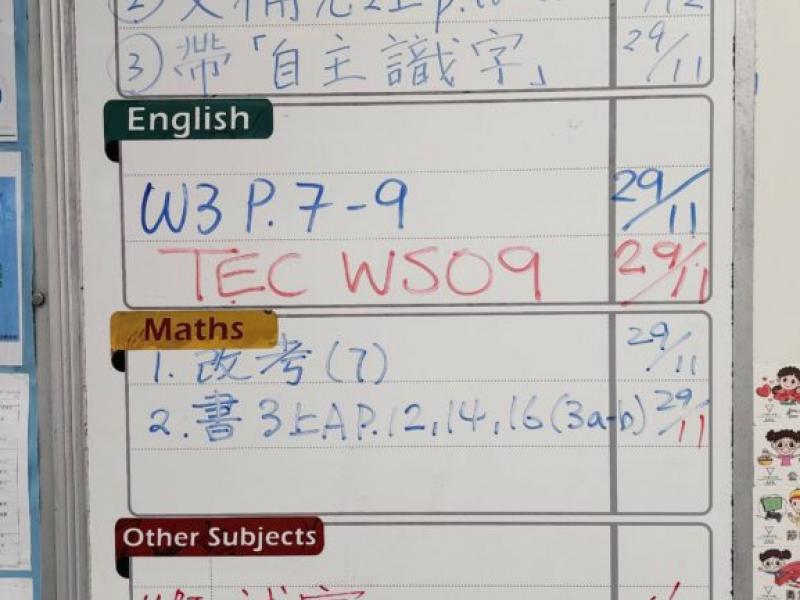 ③ 帶「自主識字」 29/11
English
W3 P.7-9 29/11
TEC WS09 29/11
Maths
1. 改考(7) 29/11
2. 書3上A P.12,14,16(3a-b) 29/11
Other Subjects